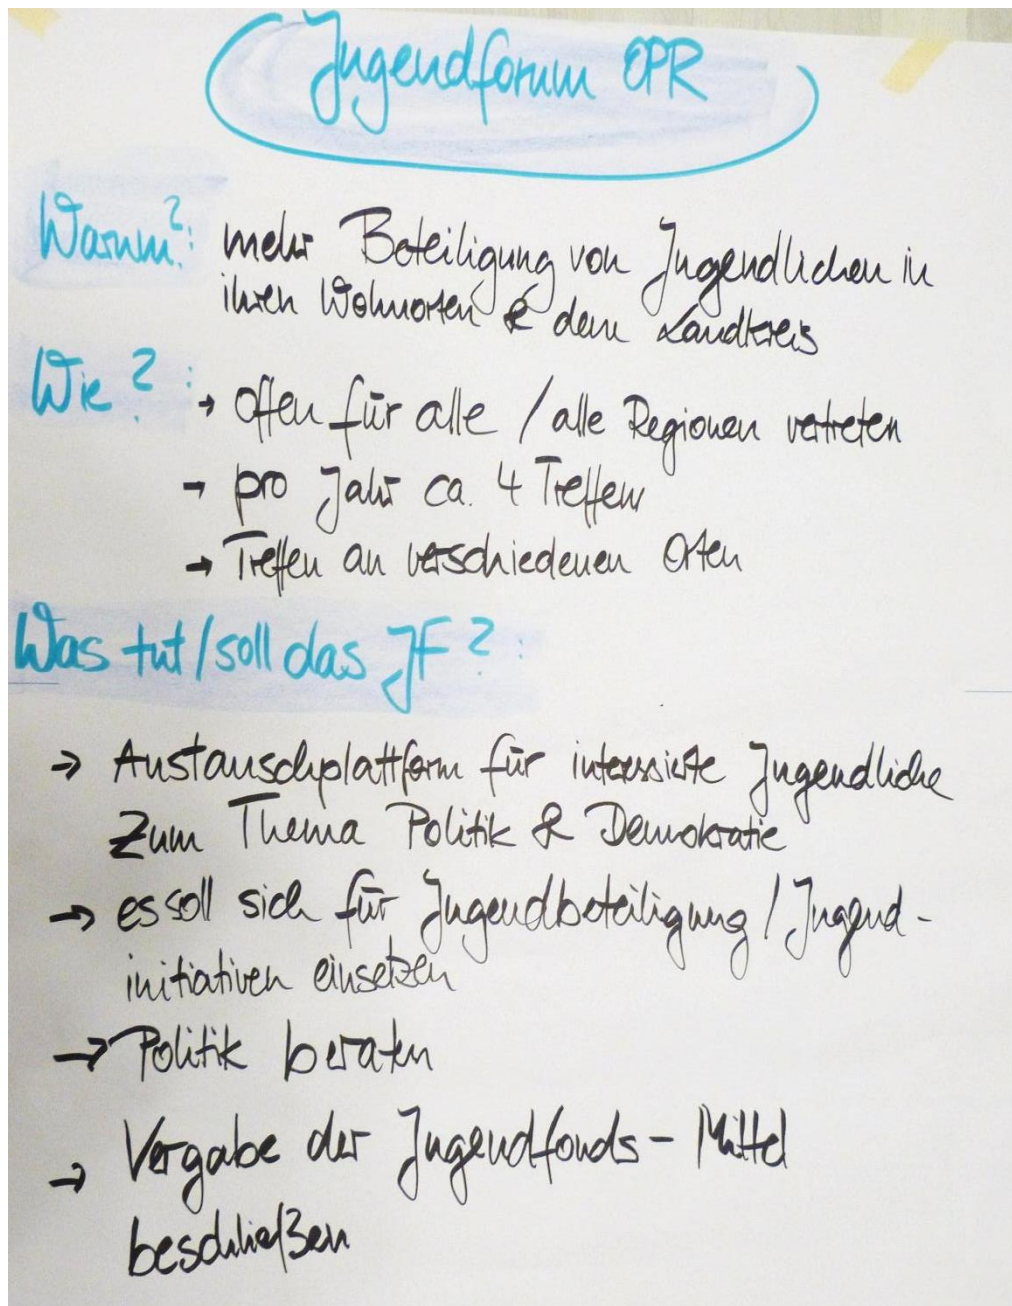 Jugendforum OPR
Warum?: mehr Beteiligung von Jugendlichen in
ihren Wohnorten & dem Landkreis
Wie?: → offen für alle / alle Regionen vertreten
→ pro Jahr ca. 4 Treffen
→ Treffen an verschiedenen Orten
Was tut/soll das JF?:
→ Austauschplattform für interessierte Jugendliche
Zum Thema Politik & Demokratie
→ es soll sich für Jugendbeteiligung / Jugend-
initiativen einsetzen
→ Politik beraten
→ Vergabe der Jugendfonds - Mittel
beschließen